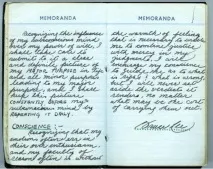 MEMORANDA
Recognizing the influence
of my subconscious mind
over my power of will, I
shall take care to
submit to it a clear
and definite picture of
my MAJOR PURPOSE in life
and all minor purposes
leading to my major
purpose, and I shall
keep this picture
CONSTANTLY BEFORE my
subconscious mind by
REPEATING IT DAILY.
CONSCIENCE:
Recognizing that my
emotions often err in
their over-enthusiasm,
and my faculty of
reason often is without
MEMORANDA
the warmth of feeling
that is necessary to enable
me to combine justice
with mercy in my
judgments, I will
encourage my conscience
to guide me as to what
is right & what is wrong,
but I will never set
aside the verdicts it
renders, no matter
what may be the cost
of carrying them out.
Bruce Lee